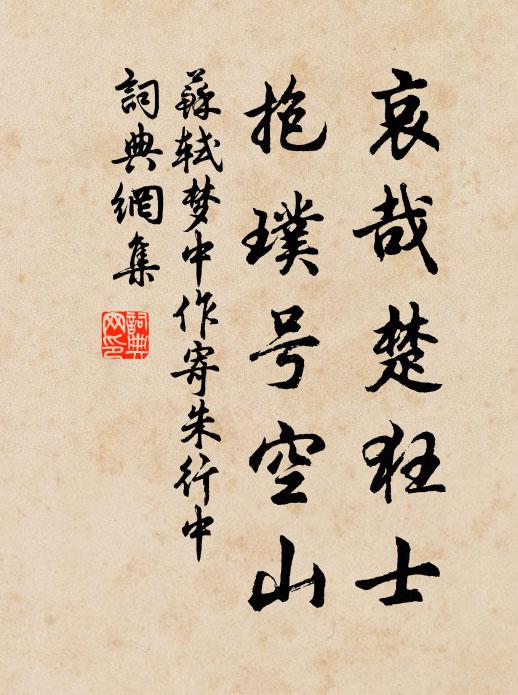 哀哉楚狂士
抱璞号空山
蘇軾梦中作寄朱行中
詞典網集
詞典
网印